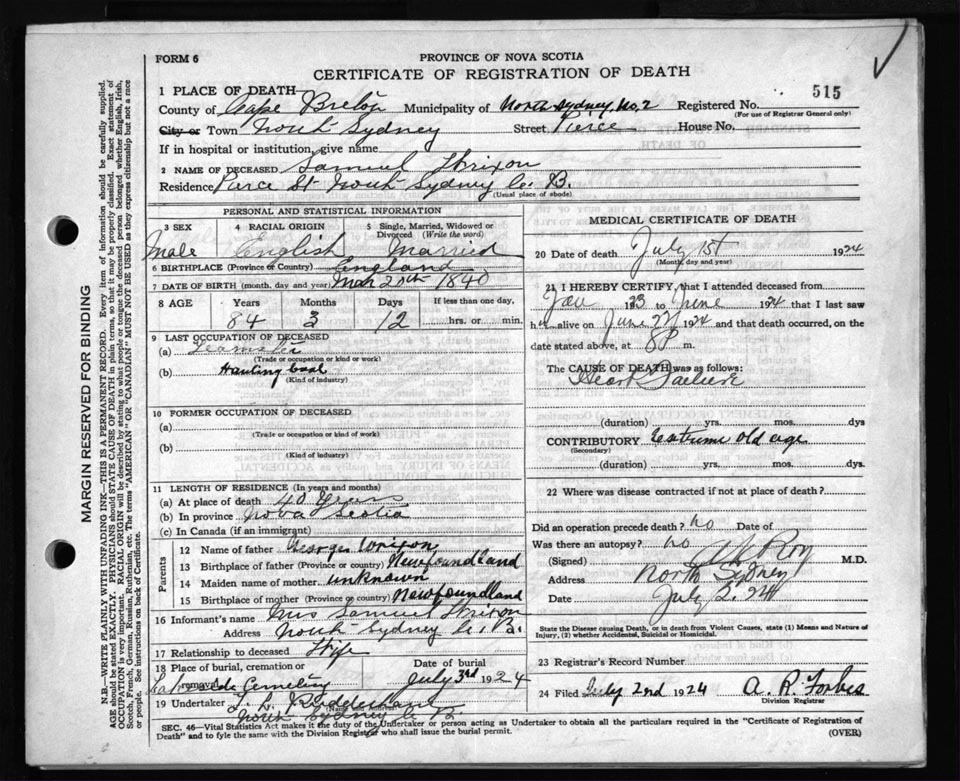 FORM 6
PROVINCE OF NOVA SCOTIA
CERTIFICATE OF REGISTRATION OF DEATH
515
1 PLACE OF DEATH
County of Cape Breton Municipality of North Sydney, No, 2 Registered No.
(For use of Registrar General only)
City or Town North Sydney Street Pierce House No.
If in hospital or institution, give name
2 NAME OF DECEASED Samuel Wrixon
Residence Pierce St North Sydney C. B.
(Usual place of abode)
PERSONAL AND STATISTICAL INFORMATION
3 SEX 4 RACIAL ORIGIN 5 Single, Married, Widowed or Divorced (Write the word)
Male English Married
6 BIRTHPLACE (Province or Country) England
7 DATE OF BIRTH (month, day and year) Mar 20th 1840
8 AGE Years Months Days If less than one day,
84 3 12 hrs. or min.
9 LAST OCCUPATION OF DECEASED
(a) Teamster
(Trade or occupation or kind or work)
(b) Hauling coal
(Kind of industry)
10 FORMER OCCUPATION OF DECEASED
(a)
(Trade or occupation or kind of work)
(b)
(Kind of industry)
11 LENGTH OF RESIDENCE (In years and months)
(a) At place of death 40 years
(b) In province Nova Scotia
(c) In Canada (if an immigrant)
Parents
12 Name of father George Wrixon
13 Birthplace of father (Province or country) Newfoundland
14 Maiden name of mother unknown
15 Birthplace of mother (Province or country) Newfoundland
16 Informant's name Mrs Samuel Wrixon
Address North Sydney C. B.
17 Relationship to deceased Wife
18 Place of burial, cremation or removal Date of burial
Lakeside Cemetery July 3rd 1924
19 Undertaker
(Name and Address)
North Sydney C B
MEDICAL CERTIFICATE OF DEATH
20 Date of death July 1st 1924
(Month, day and year)
21 I HEREBY CERTIFY, that I attended deceased from
Jan 1923 to June 1924 that I last saw
h alive on June 27 1924 and that death occurred, on the
date stated above, at 8 P m.
The CAUSE OF DEATH was as follows:
Heart Failure
(duration) yrs. mos. dys
CONTRIBUTORY Extreme old age
(Secondary)
(duration) yrs. mos. dys.
22 Where was disease contracted if not at place of death?
Did an operation precede death? no Date of
Was there an autopsy? no
(Signed) Roy M.D.
Address North Sydney
Date July 2. 24
State the Disease causing Death, or in death from Violent Causes, state (1) Means and Nature of Injury, (2) whether Accidental, Suicidal or Homicidal.
23 Registrar's Record Number
24 Filed July 2nd 1924 A. R. Forbes
Division Registrar
SEC. 46—Vital Statistics Act makes it the duty of the Undertaker or person acting as Undertaker to obtain all the particulars required in the "Certificate of Registration of
Death" and to fyle the same with the Division Registrar who shall issue the burial permit. (OVER)
MARGIN RESERVED FOR BINDING
N.B.—WRITE PLAINLY WITH UNFADING INK—THIS IS A PERMANENT RECORD. Every item of information should be carefully supplied.
AGE should be stated EXACTLY. PHYSICIANS should STATE CAUSE OF DEATH in plain terms, so that it may be properly classified. Exact statement of
OCCUPATION is very important. RACIAL ORIGIN will be described by stating to what people or tongue the deceased person belonged whether English, Irish,
Scotch, French, German, Russian, Ruthenian, etc. The terms "AMERICAN" or "CANADIAN" MUST NOT BE USED as they express citizenship but not a race
or people. See instructions on back of Certificate.